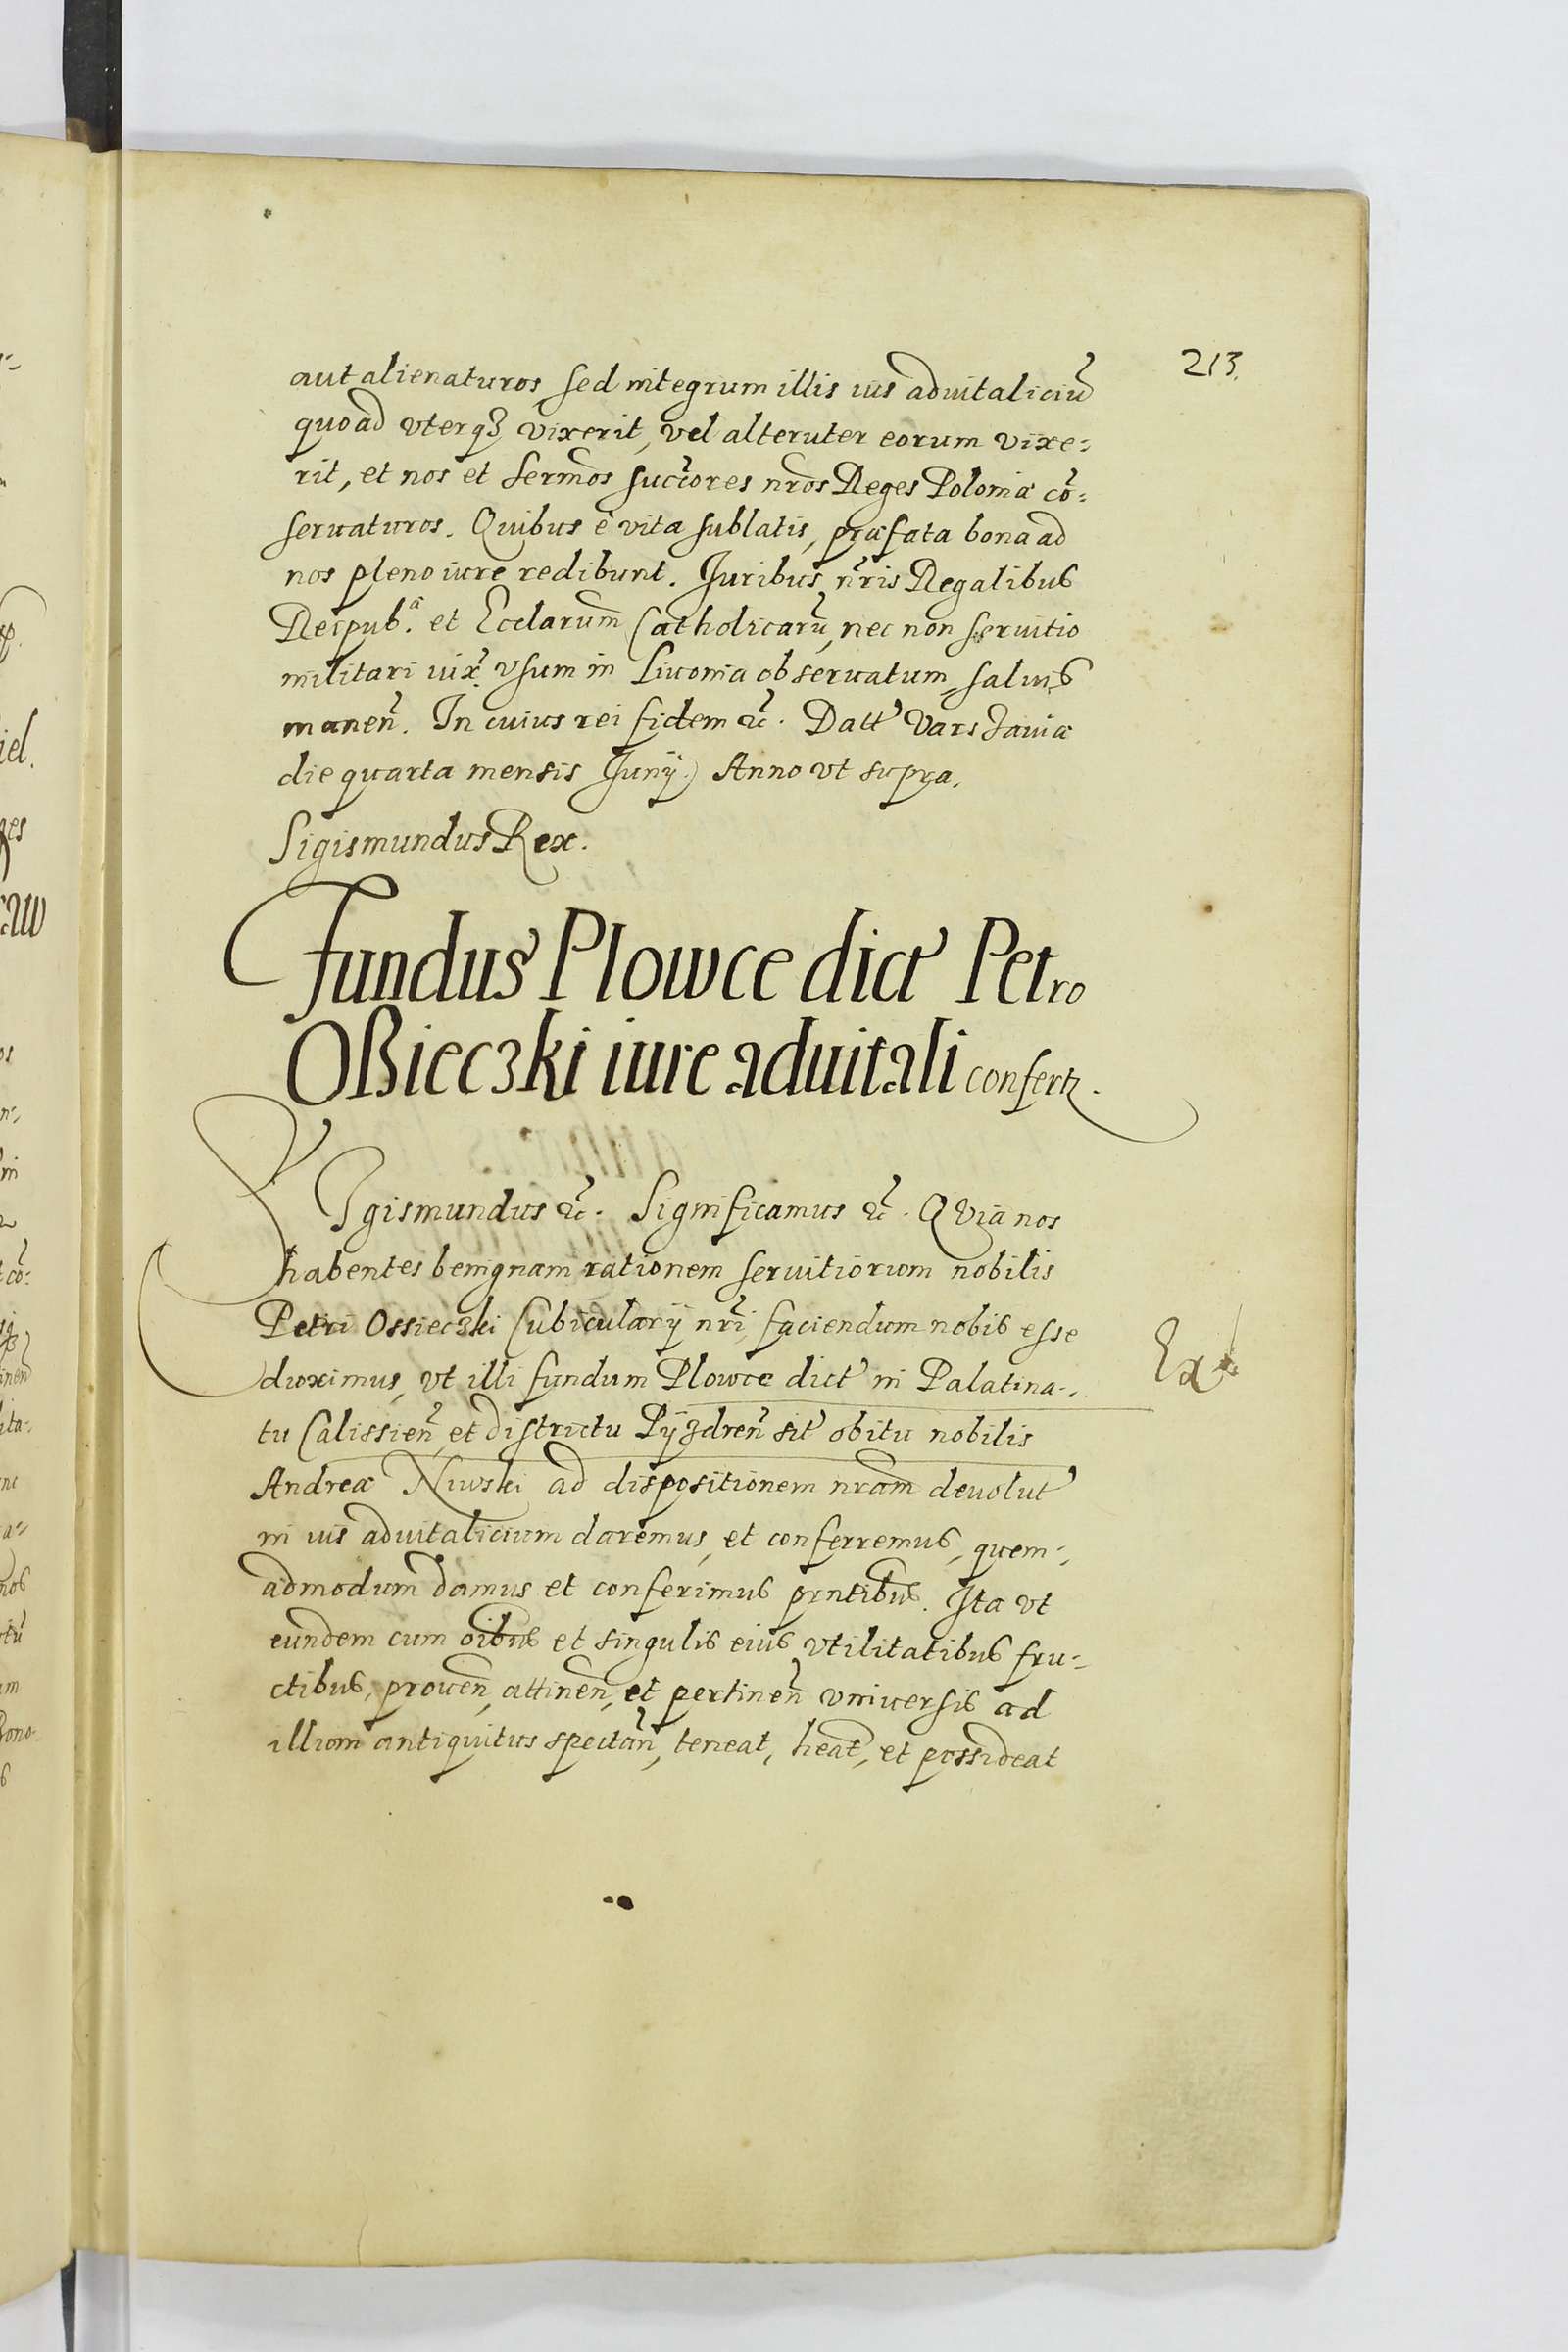 213.
aut alienaturos, sed integrum illis ius aduitaliciũ
quoad vterqȝ vixerit, vel alteruter eorum vixe-
rit, et nos et Sermos succores nros Reges Poloniæ cõ-
seruaturos. Quibus è vita sublatis, præfata bona ad
nos pleno iure redibunt. Juribus nris Regalibus
Reipub.ᵃ et Ecclarum Catholicarũ, nec non seruitio
militari iux̃ vsum in Liuonia obseruatum, saluis
maneñ. In cuius rei fidem &c̃. Datt Varsзauiæ
die quarta mensis Junÿ. Anno vt supra.
Sigismundus Rex.
Fundus Plowce dict Petro
Oßieczki iure aduitali confertꝛ.
SIgismundus &c̃. Significamus &c̃. QVia nos
habentes benignam rationem seruitiorum nobilis
Petri Ossieczki Cubicularÿ nri, faciendum nobis esse
duximus, vt illi fundum Plowce dict in Palatina-
Ex
tu Calissieñ et districtu Pÿzdreñ sit obitu nobilis
Andreæ Niwski ad dispositionem nram deuolut
in ius aduitalicium daremus, et conferremus, quem-
admodum damus et conferimus prntibus. Ita vt
eundem cum oibus et singulis eius vtilitatibus fru-
ctibus, proueñ, attineñ, et pertineñ vniuersis ad
illum antiquitus spectañ, teneat, heat, et possideat